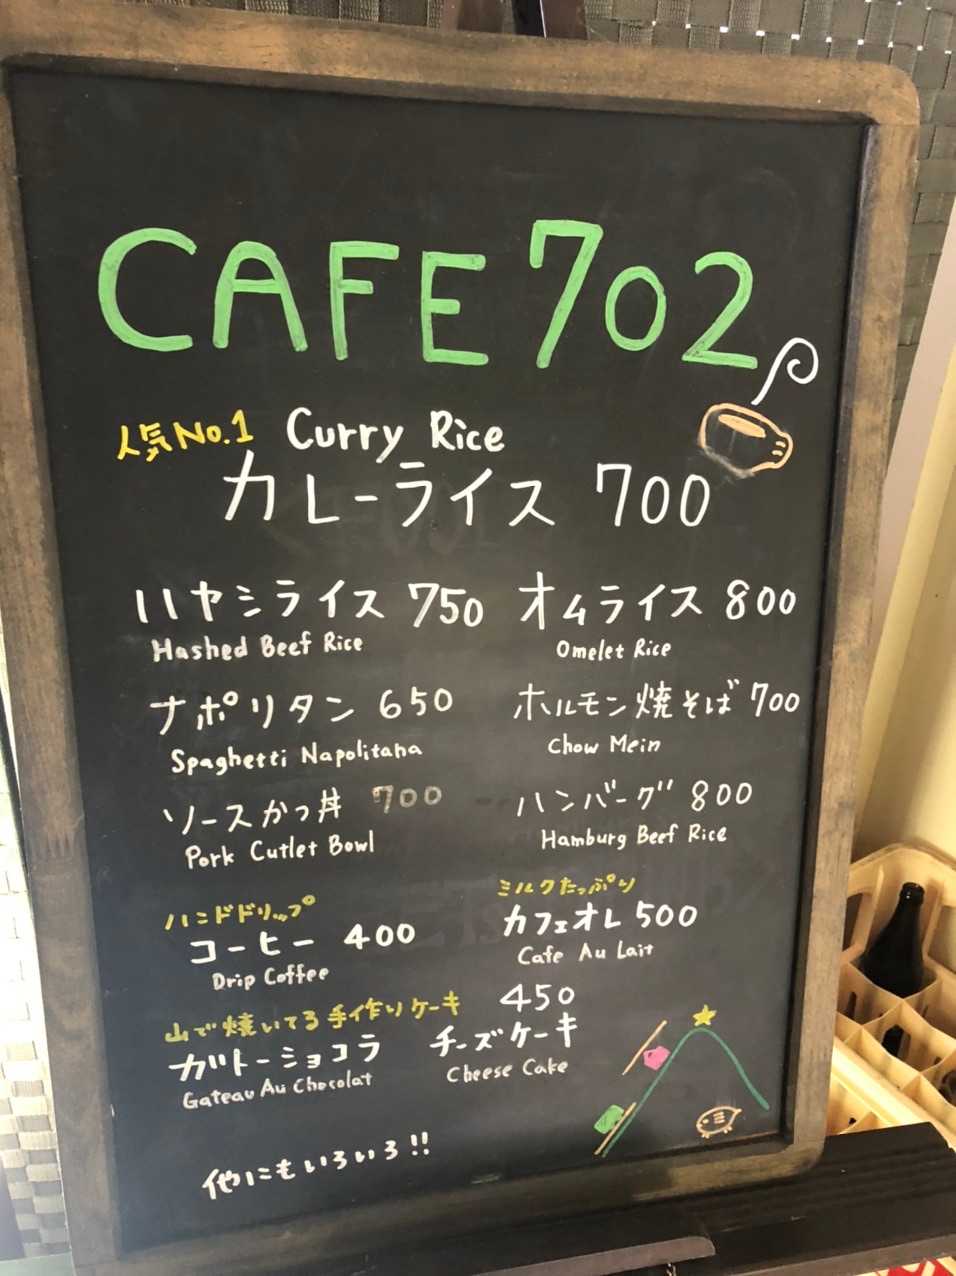 CAFE 702
人気No.1 Curry Rice
カレーライス 700
ハヤシライス 750
Hashed Beef Rice
オムライス 800
Omelet Rice
ナポリタン 650
Spaghetti Napolitana
ホルモン焼そば 700
Chow Mein
ソースかつ丼 700
Pork Cutlet Bowl
ハンバーグ 800
Hamburg Beef Rice
ハンドドリップ
コーヒー 400
Drip Coffee
ミルクたっぷり
カフェオレ 500
Cafe Au Lait
山で焼いてる手作りケーキ 450
ガトーショコラ
Gateau Au Chocolat
チーズケーキ
Cheese Cake
他にもいろいろ!!